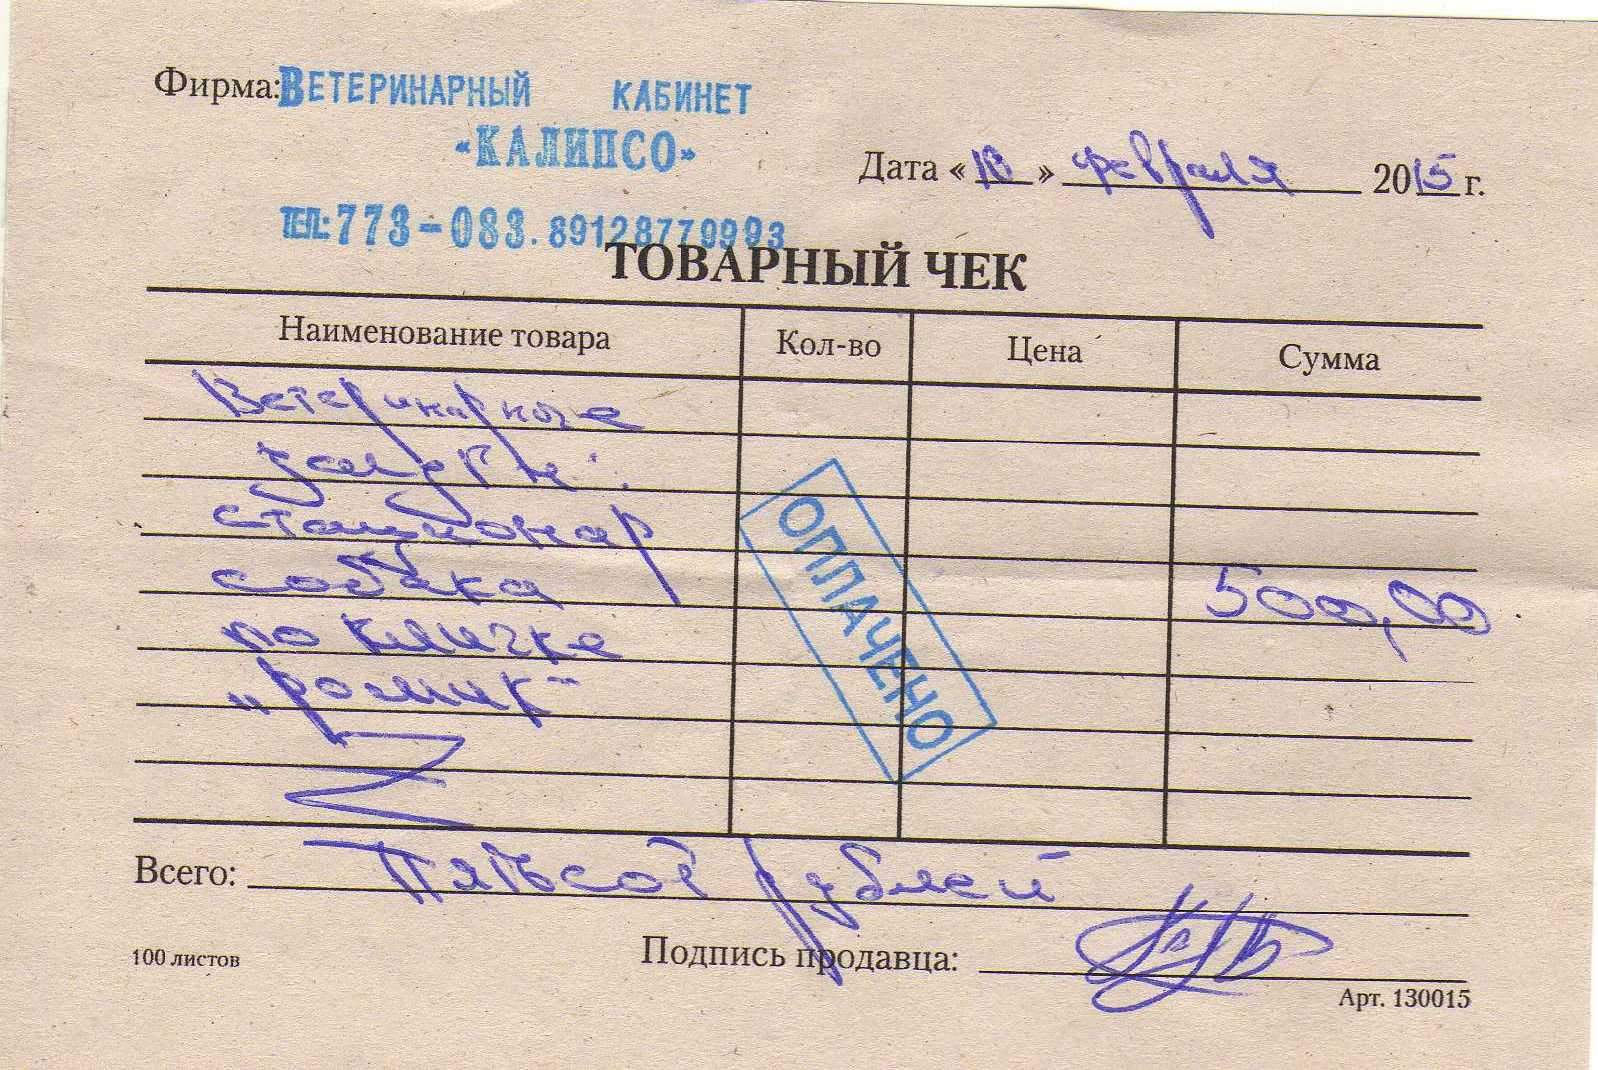 Фирма: ВЕТЕРИНАРНЫЙ КАБИНЕТ
«КАЛИПСО»
Дата «10» февраля 2015 г.
ТЕЛ: 773-083. 89128779993
ТОВАРНЫЙ ЧЕК
Наименование товара Кол-во Цена Сумма
Ветеринарные
услуги:
стационар
собака 500,00
по кличке
"Ромик"
ОПЛАЧЕНО
Всего: Пятьсот рублей
100 листов Подпись продавца:
Арт. 130015